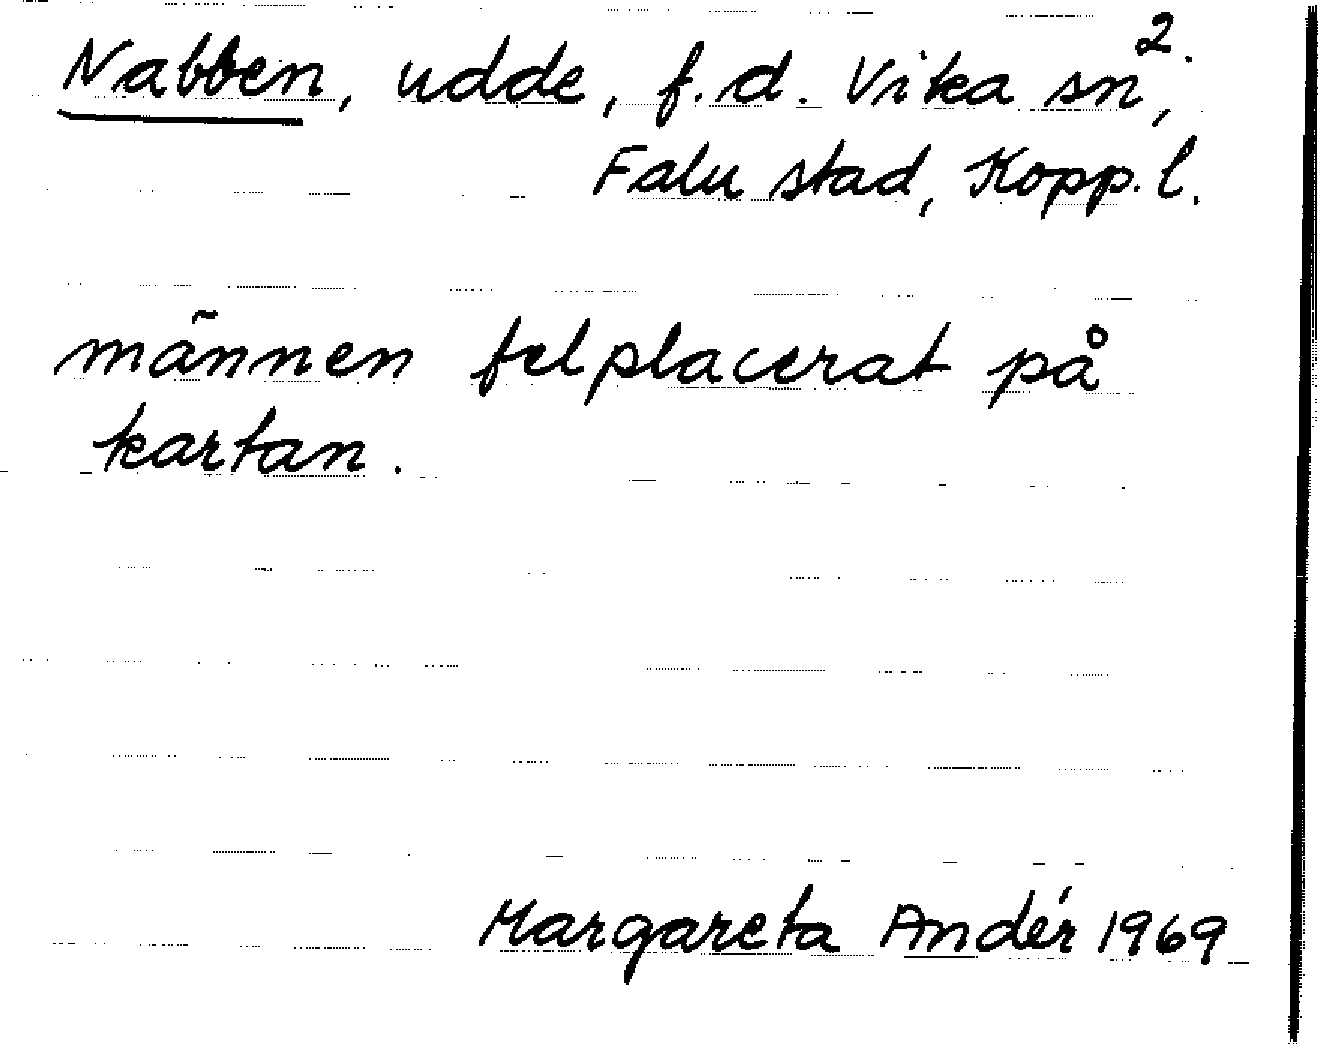 Nabben, udde, f.d. Vika sn, 2.
Falu stad, Kopp. l.
männen felplacerat på
kartan.
Margareta Andér 1969